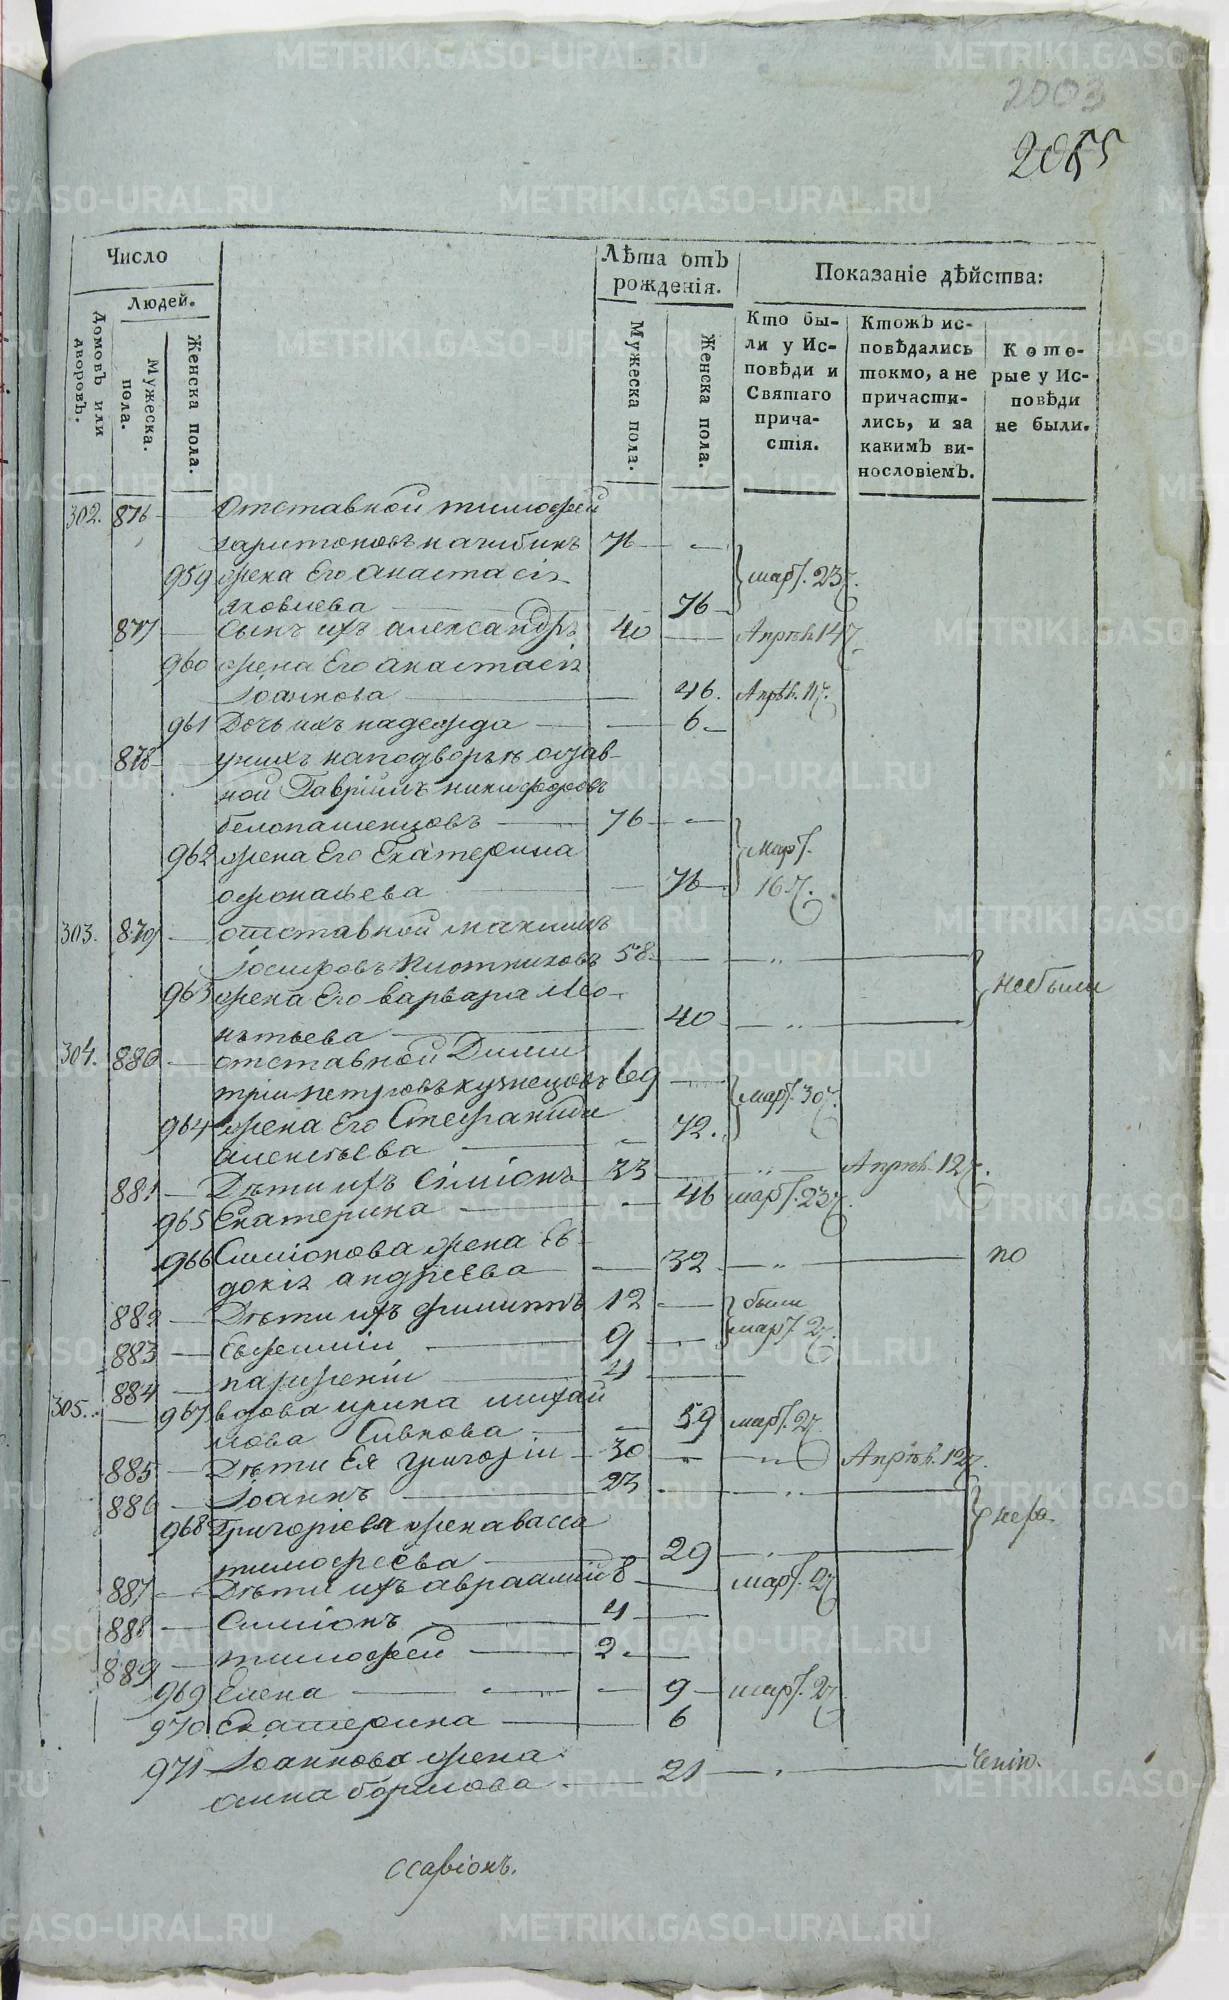 2003
2055
Число
Людей.
Домовъ или дворовъ.
Мужеска пола.
Женска пола.
Лѣта отъ рожденія.
Мужеска пола.
Женска пола.
Показаніе дѣйства:
Кто были у Исповѣди и Святаго причастія.
Ктожъ исповѣдались токмо, а не причастились, и за какимъ винословіемъ.
Которые у Исповѣди не были.
302. 876 — Отставной тимофей
харитоновъ нагибинъ 76 — —
959 жена Его анастасія март. 23
яковлева — 76
877 — Сынъ ихъ александръ 40 — Апрѣл. 14
960 жена Его анастасія
Іоаннова — 46. Апрѣл. 11
961 Дочь ихъ надежда — — 6
878 — унихъ наподворьѣ
ной Гавріилъ никифоровъ
белопашенцовъ — 76 — —
962 жена Его Екатерина март.
афонасьева — 76 16
303. 879 — отставной максимъ
Іосифовъ плотниковъ 58 — — „ —
963 жена Его варвара Лео- небыли
нтьева — 40 — „ —
304. 880 — отставной Дими
трій петровъ кузнецовъ 69 —
964 жена Его Стефанида март. 30
алексѣева — 72.
881 — Дѣти ихъ Симіонъ 33 — „ — Апрѣл. 12
965 Екатерина — 46 март. 23
966 Симіонова жена Ев-
докія андреева — 32 — „ — по
882 — Дѣти ихъ филиппъ 12 — были
883 — Евфимій — 9 — март. 2
884 — парфеній — 4 —
305. — 967 вдова ирина михай
лова Сивкова — 59 март. 2
885 — Дѣти Ея григорій — 30 — „ — Апрѣл. 12
886 — Іоаннъ — 23 — „ —
968 Григорiева жена васса
тимофеева — 29 — „ —
887 — Дѣти ихъ авраамій 8 — март. 2
888 — Симіонъ — 4 —
889 — тимофей — 2. —
969 Елена — — 9 — март. 2
970 Екатерина — 6
971 Іоаннова жена
анна борисова — 21 — „ —
METRIKI.GASO-URAL.RU